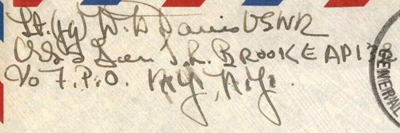 Lt. (jg) W. D. Davis USNR
USS Gen J.R. BROOKE AP132
c/o F.P.O. N.Y., N.Y.
GENERAL